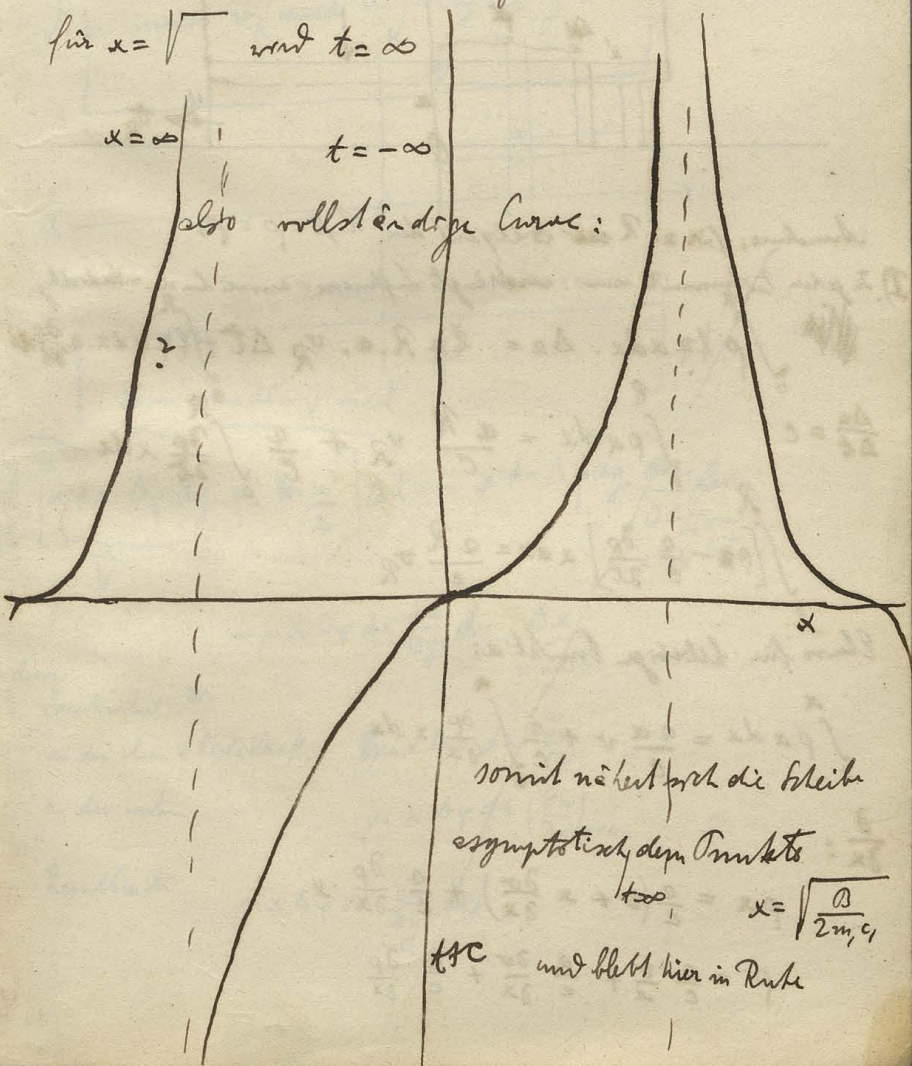 für x = √ wird t = ∞
x = ∞ t = -∞
also vollständige Curve:
?
x
somit nähert sich die Scheibe
asymptotisch dem Punkte
t=∞
x = √(B/2m₁c₁)
t+C
und bleibt hier in Ruhe